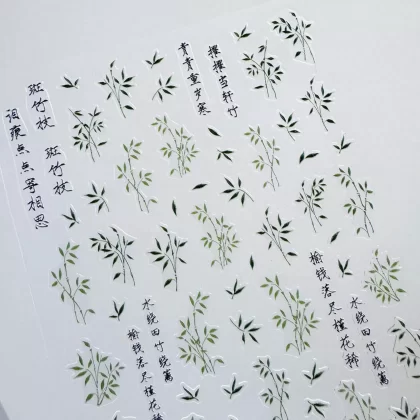 斑竹枝 斑竹枝
泪痕点点寄相思
攒攒当轩竹
青青重岁寒
水绕田竹绕篱
榆钱落尽槿花稀
水绕田竹绕篱
榆钱落尽槿花稀